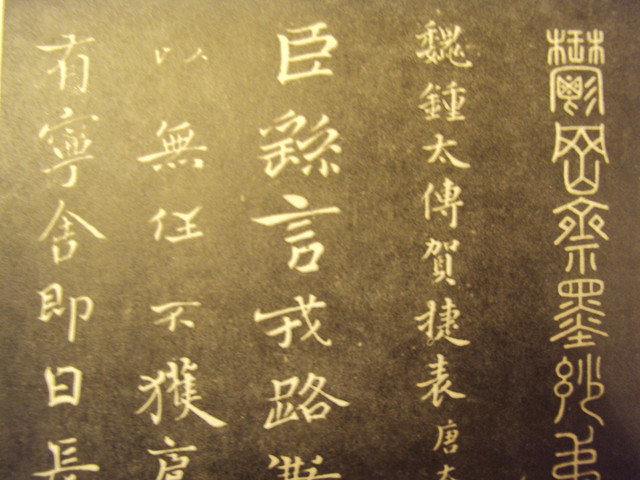 鬱岡齋墨妙
魏鍾太傅賀捷表 唐
臣繇言戎路
以無任不獲
有寧舍即日長